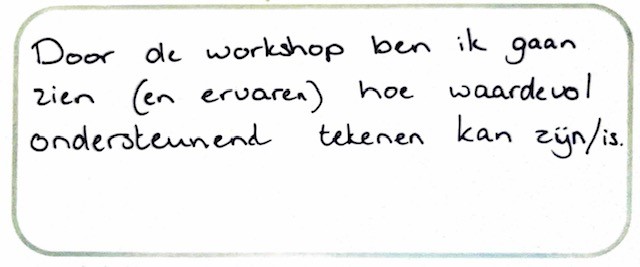 Door de workshop ben ik gaan
zien (en ervaren) hoe waardevol
ondersteunend tekenen kan zijn/is.